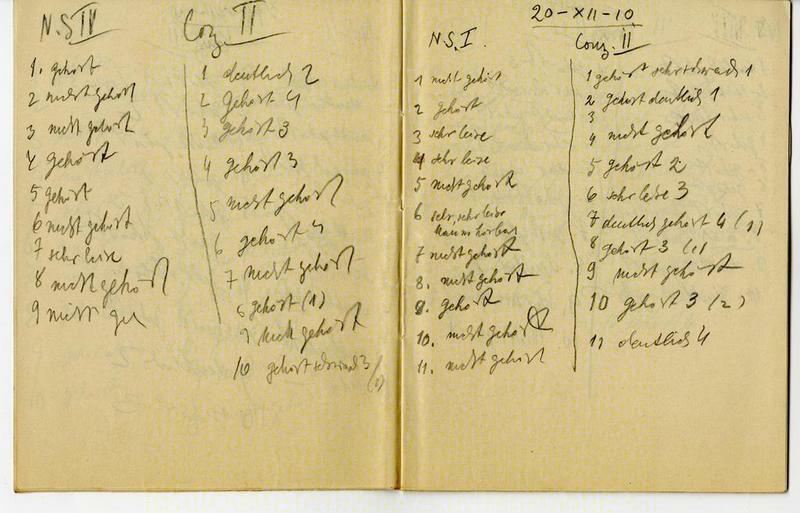 N.S IV
1. gehört
2 nicht gehört
3 nicht gehört
4 gehört
5 gehört
6 nicht gehört
7 sehr leise
8 nicht gehört
9 nicht ge
II
1 deutlich 2
2 gehört 4
3 gehört 3
4 gehört 3
5 nicht gehört
6 gehört 4
7 nicht gehört
8 gehört (1)
9 nicht gehört
10 gehört schwach 3
20-XII-10
N.S.I.
1 nicht gehört
2 gehört
3 sehr leise
4 sehr leise
5 nicht gehört
6 sehr, sehr leise
kaum hörbar
7 nicht gehört
8. nicht gehört
9. gehört
10. nicht gehört
11. nicht gehört
II
1 gehört sehr schwach 1
2 gehört deutlich 1
3
4 nicht gehört
5 gehört 2
6 sehr leise 3
7 deutlich gehört 4 (1)
8 gehört 3 (1)
9 nicht gehört
10 gehört 3 (2)
11 deutlich 4